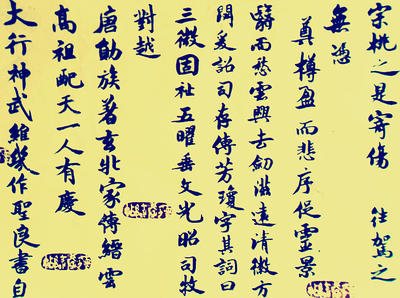 宗祧之是寄傷 往駕之
無憑
奠樽盈而悲序促靈景
翳而愁雲興去劒滋遠清徽方
閟爰詔司存傳芳瓊字其詞曰
三微固祉五曜垂文光昭司牧
對越
唐勛族著玄北家傳縉雲
高祖配天一人有慶
大行神武維幾作聖良書自